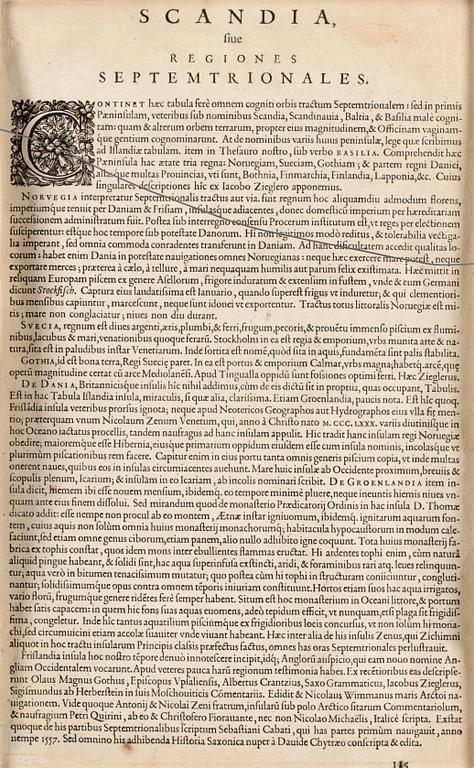 SCANDIA,
siue
REGIONES
SEPTEMTRIONALES.
CONTINET hæc tabula ferè omnem cogniti orbis tractum Septemtrionalem: sed in primis
Pæninsulam, veteribus sub nominibus Scandia, Scandinauia, Baltia, & Basilia malè cogni-
tam: quam & alterum orbem terrarum, propter eius magnitudinem, & Officinam vaginam-
que gentium cognominarunt. At de nominibus variis huius peninsulæ, lege quæ scribimus
ad Islandiæ tabulam. item in Thesauro nostro, sub verbo BASILIA. Comprehendit hæc
Pæninsula hac ætate tria regna: Noruegiam, Sueciam, Gothiam; & partem regni Danici,
aliasque multas Prouincias, vti sunt, Bothnia, Finmarchia, Finlandia, Lapponia, &c. Cuius
singulares descriptiones hîc ex Iacobo Zieglero apponemus.
NORVEGIA interpretatur Septemtrionalis tractus aut via. fuit regnum hoc aliquamdiu admodum florens,
imperiumque tenuit per Daniam & Frisiam, insulasque adiacentes, donec domestici imperium per hæreditariam
successionem administratum fuit. Postea sub interregno consensu Procerum institutum est, vt reges per electionem
susciperentur: estque hoc tempore sub potestate Danorum. Hi non legitimos modò reditus, & tolerabilia vectiga-
lia imperant, sed omnia commoda conradentes transferunt in Daniam. Ad hanc difficultatem accedit qualitas lo-
corum: habet enim Dania in potestate nauigationes omnes Noruegianas: neque hæc exercere mare potest, neque
exportare merces; præterea à cælo, à tellure, à mari nequaquam humilis aut parum felix existimata. Hæc mittit in
reliquam Europam piscem ex genere Asellorum, frigore induratum & extensum in fustem, vnde & eum Germani
dicunt Stockfisch. Captura eius laudatissima est Ianuario, quando superest frigus vt induretur; & qui clementiori-
bus mensibus capiuntur, marcescunt, neque sunt idonei vt exportentur. Tractus totus littoralis Noruegiæ est mi-
tis; mare non conglaciatur; niues non diu durant.
SVECIA, regnum est diues argenti, æris, plumbi, & ferri, frugum, pecoris, & prouētu immenso piscium ex flumi-
nibus, lacubus & mari, venationibus quoque ferarū. Stockholm in ea est regia & emporium, vrbs munita arte & na-
tura, sita est in paludibus instar Venetiarum. Inde sortita est nomē, quòd sita in aquis, fundamēta sint palis stabilita.
GOTHIA, id est bona terra, Regi Sueciæ paret. In ea est portus & emporium Calmar, vrbs magna, habetq. arcē, quę
operū magnitudine certat cū arce Mediolanēsi. Apud Tinguallā oppidū sunt fossiones optimi ferri. Hæc Zieglerus.
DE DANIA, Britannicisque insulis hîc nihil addimus, cùm de eis dictū sit in propriis, quas occupant, Tabulis.
Est in hac Tabula Islandia insula, miraculis, si quæ alia, clarissima. Etiam Groenlandia, paucis nota. Est hîc quoq.
Frislādia insula veteribus prorsus ignota; neque apud Neotericos Geographos aut Hydrographos eius vlla fit men-
tio; præterquam vnum Nicolaum Zenum Venetum, qui, anno à Christo nato M. CCC. LXXX. variis diutinisque in
hoc Oceano iactatus procellis, tandem naufragus ad hanc insulam appulit. Hic tradit hanc insulam regi Noruegiæ
obedire; maioremque esse Hibernia, eiusque primarium oppidum eiusdem esse cum insula nominis, incolasque vt
plurimùm piscationibus rem facere. Capitur enim in eius portu tanta omnis generis piscium copia, vt inde multas
onerent naues, quibus eos in insulas circumiacentes auehunt. Mare huic insulæ ab Occidente proximum, breuiis &
scopulis plenum, Icarium; & insulam in eo Icariam, ab incolis nominari scribit. DE GROENLANDIA item in-
sula dicit, hiemem ibi esse nouem mensium, ibidemq. eo tempore minimè pluere, neque ineuntis hiemis niues vn-
quam ante eius finem dissolui. Sed mirandum quod de monasterio Prædicatorij Ordinis in hac insula D. Thomæ
dicato addit: esse nempe non procul ab eo montem, Ætnæ instar igniuomum, ibidemq. ignitarum aquarum fon-
tem, cuius aquis non solùm omnia huius monasterij monachorumq; habitacula hypocaustorum in modum cale-
faciunt, sed etiam omne genus ciborum, etiam panem, alio nullo adhibito igne coquunt. Tota huius monasterij fa-
brica ex tophis constat, quos idem mons inter ebullientes flammas eructat. Hi ardentes tophi enim, cùm naturâ
aliquid pingue habeant, & solidi sint, hac aqua superinfusa exstincti, aridi, & foraminibus rari atq. leues relinquun-
tur; aqua verò in bitumen tenacissimum mutatur; quo postea cùm hi tophi in structuram coniiciuntur, congluti-
nantur; solidissimumque opus contra omnem tēporis iniuriam constituunt. Hortos etiam suos hac aqua irrigatos,
vario florū, frugumque genere ridētes ferè semper habent. Situm est hoc monasterium in Oceani littore, & portum
habet satis capacem in quem hic fons suas aquas euomens, adeò tepidum efficit, vt nunquam, etsi plaga sit frigidis-
sima, congeletur. Inde hîc tantus aquatilium pisciūmque ex frigidioribus locis concursus, vt non solùm hi mona-
chi, sed circumuicini etiam accolæ suauiter vnde viuant habeant. Hæc inter alia de his insulis Zenus, qui Zichimni
aliquot in hoc tractu insularum Principis classis præfectus factus, omnes has oras Septemtrionales perlustrauit.
Frislandia insula hoc nostro tēpore denuò innotescere incipit, idq; Anglorū auspicio, qui eam nouo nomine An-
gliam Occidentalem vocarunt. Apud veteres pauca harū regionum testimonia habes. Ex recētioribus eas descripse-
runt Olaus Magnus Gothus, Episcopus Vpsaliensis, Albertus Crantzius, Saxo Grammaticus, Iacobus Zieglerus,
Sigismundus ab Herberstein in suis Moschouiticis Cōmentariis. Edidit & Nicolaus Wimmanus maris Arctoi na-
uigationem. Vide quoque Antonij & Nicolai Zeni fratrum, insularū sub polo Arctico sitarum Commentariolum,
& naufragium Petri Quirini, ab eo & Christofero Fiorauante, nec non Nicolao Michaëlis, Italicè scripta. Exstat
quoque de his partibus Septemtrionalibus scriptum Sebastiani Cabati, qui has partes primùm nauigauit, anno
nempe 1557. Sed omnino his adhibenda Historia Saxonica nuper à Dauide Chytræo conscripta & edita.